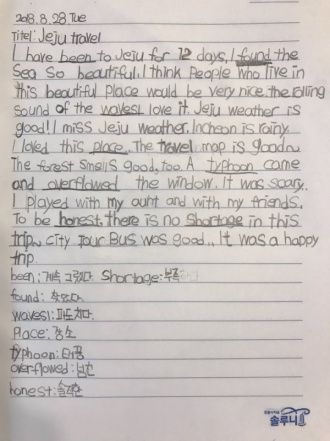 2018.8.28 Tue
Titel: Jeju travel
I have been to Jeju for 12 days, I found the
Sea So beautiful. I think People who live in
this beautiful Place would be very nice. the rolling
sound of the waves! love it. Jeju weather is
good! I miss Jeju weather. Incheon is rainy.
I loved this place. The travel map is good~
The forest smells good, too. A typhoon came
and overflowed the window. It was scary.
I played with my aunt and with my friends.
To be honest, there is no shortage in this
trip~ city tour Bus was good.. It was a happy
trip
been: 계속 Shortage: 부족
found: 찾았다.
waves1: 파도치다.
Place: 장소
typhoon: 태풍
overflowed:
honest: 솔직한
솔루니